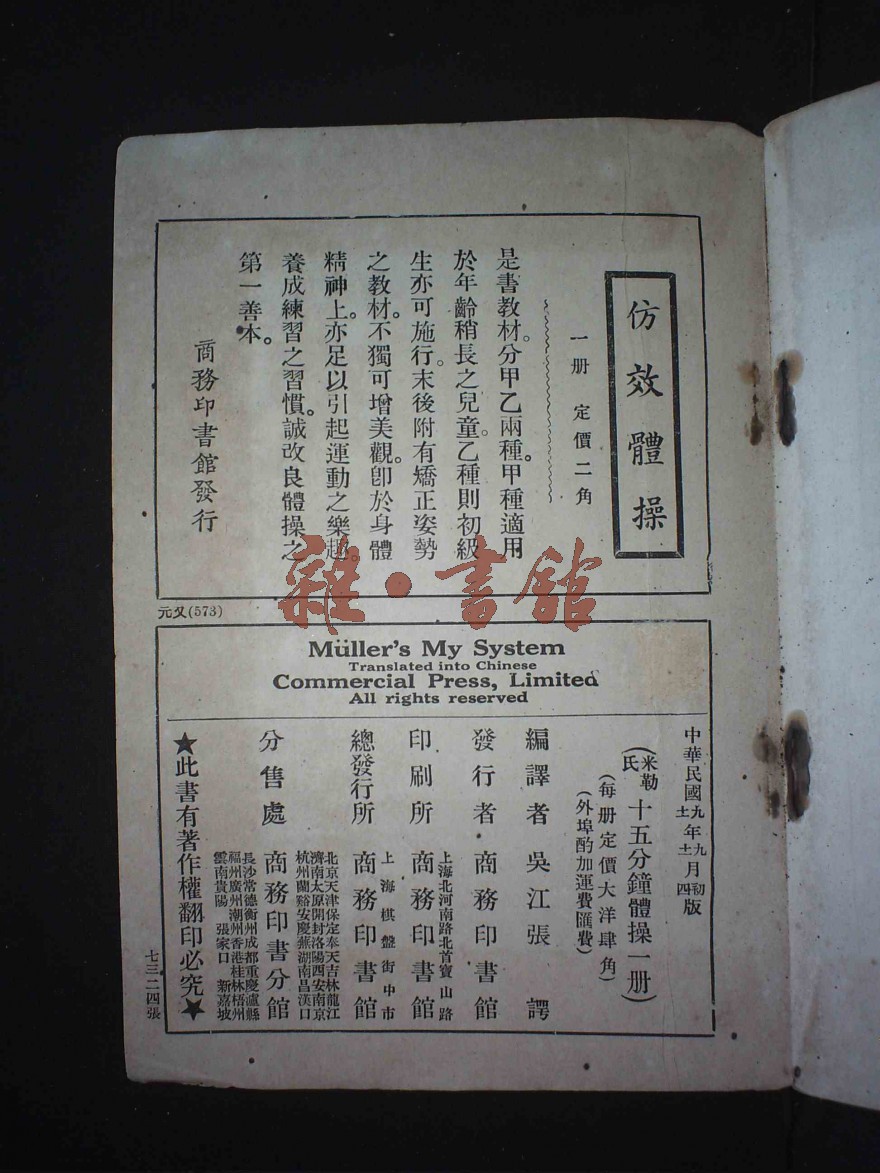 仿效體操
一册 定價二角
是書教材。分甲乙兩種。甲種適用
於年齡稍長之兒童。乙種則初級
生亦可施行。末後附有矯正姿勢
之教材。不獨可增美觀。卽於身體
精神上。亦足以引起運動之樂趣
養成練習之習慣。誠改良體操之
第一善本。
商務印書館發行
元父(573)
雜·書館
Müller's My System
Translated into Chinese
Commercial Press, Limited
All rights reserved
中華民國九年九月初版
十一年十一月四版
(米勒氏十五分鐘體操一册)
(每册定價大洋肆角)
(外埠酌加運費匯費)
編譯者 吳江張諤
發行者 商務印書館
上海北河南路北首寶山路
印刷所 商務印書館
上海棋盤街中市
總發行所 商務印書館
分售處 商務印書分館
北京天津保定奉天吉林龍江
濟南太原開封洛陽西安南京
杭州蘭谿安慶蕪湖南昌漢口
長沙常德衡州成都重慶瀘縣
福州廣州潮州香港桂林梧州
雲南貴陽 張家口 新嘉坡
★此書有著作權翻印必究★
七三二四張